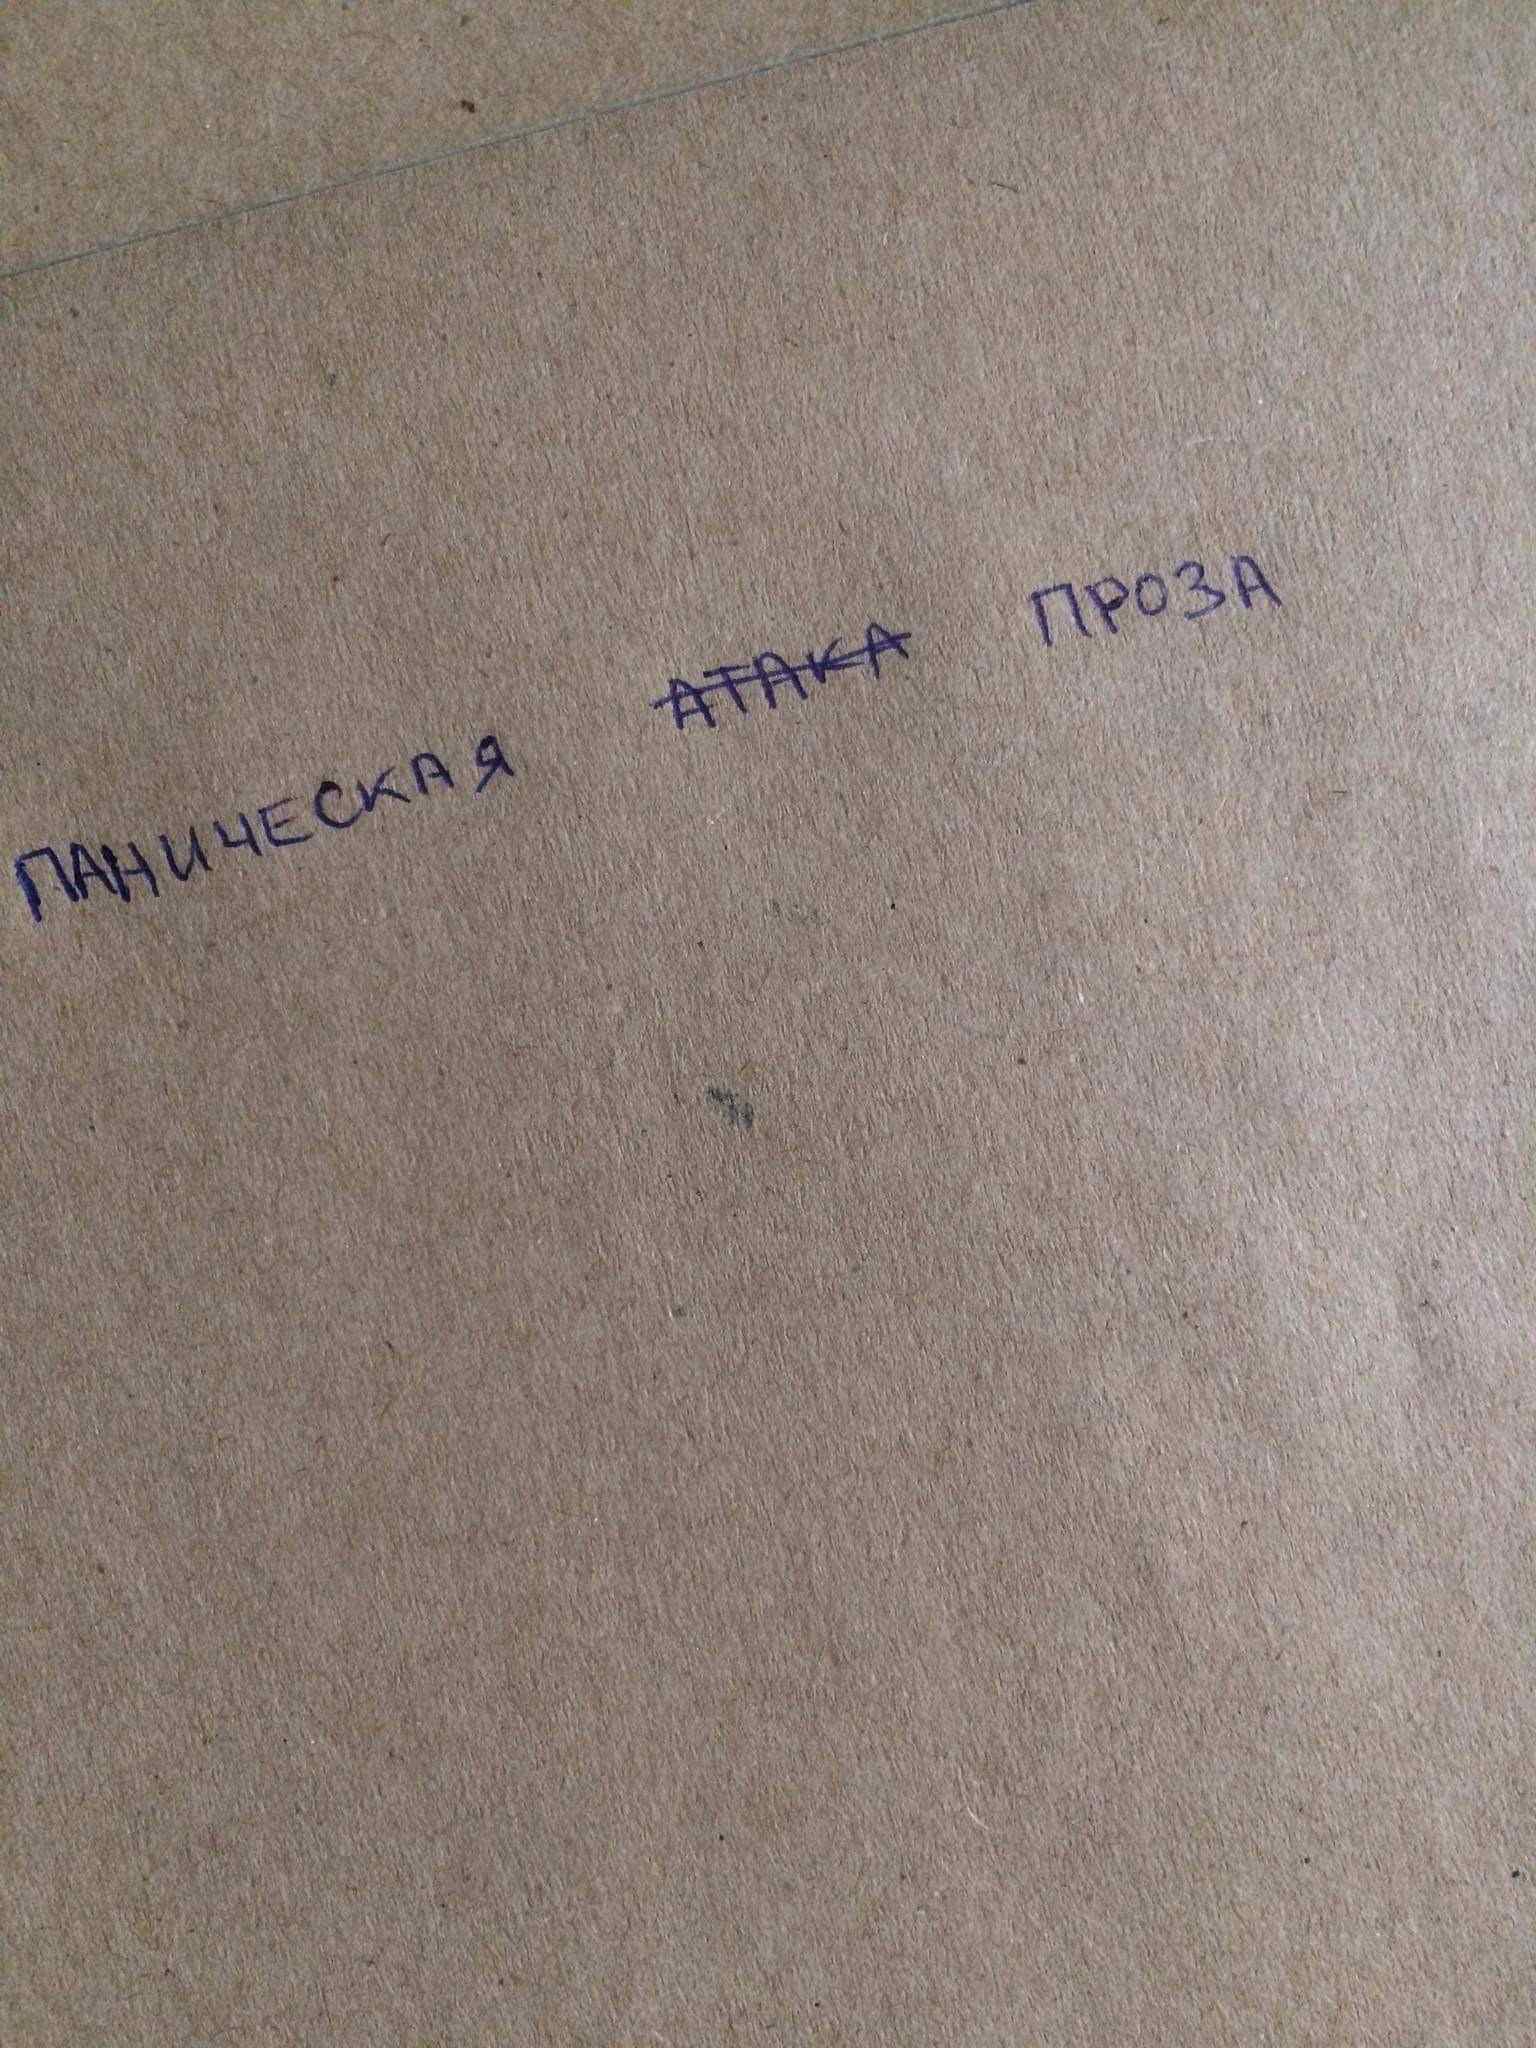 ПАНИЧЕСКАЯ АТАКА ПРОЗА